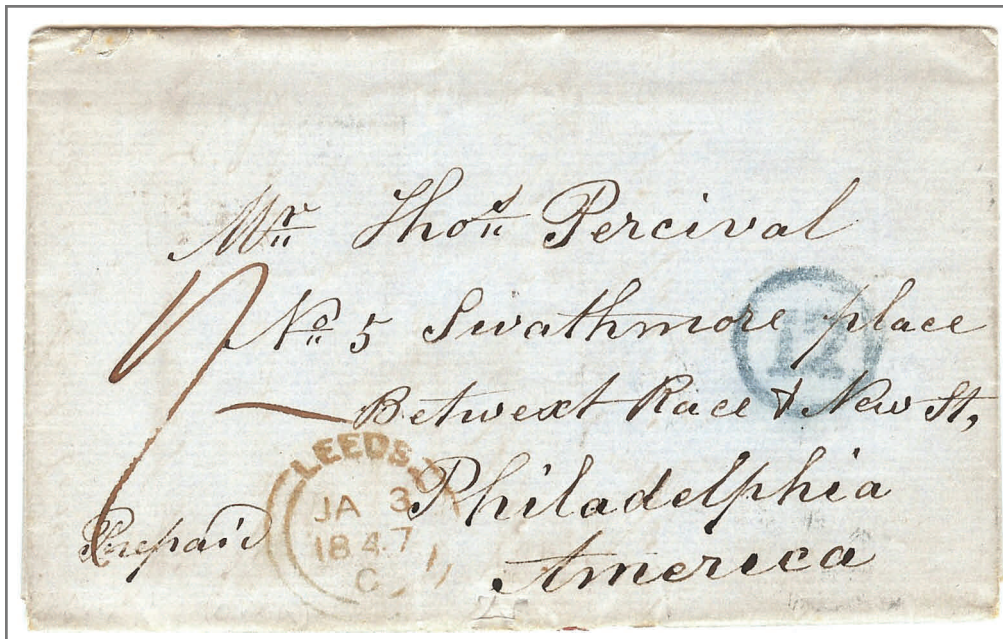 Mr Thos Percival
No 5 Swathmore place
12
Betwext Race & New St,
Philadelphia
America
Prepaid
1/-
LEEDS
JA 3
1847
C